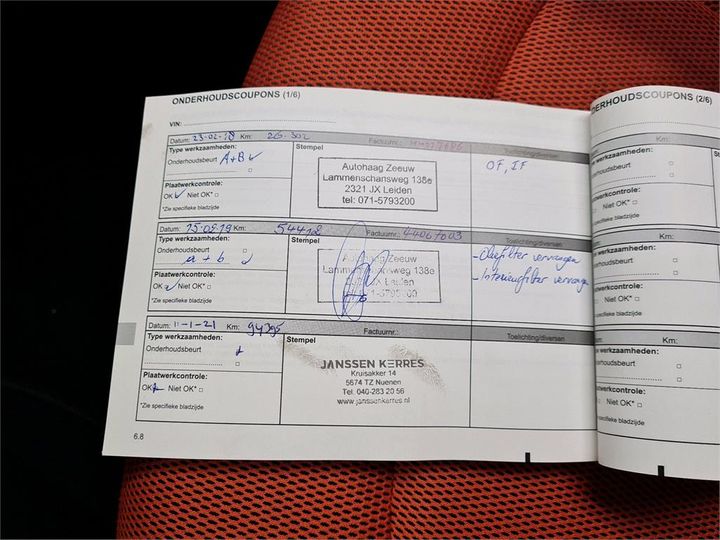 ONDERHOUDSCOUPONS (1/6)
VIN:
Datum: 23-02-18 Km: 26.302 Factuurnr.:
Type werkzaamheden: Stempel Toelichting/diversen
Onderhoudsbeurt A+B
Plaatwerkcontrole:
OK Niet OK*
*Zie specifieke bladzijde
Autohaag Zeeuw
Lammenschansweg 138e
2321 JX Leiden
tel: 071-5793200
OF, IF
Datum: 15-05-19 Km: 54418 Factuurnr.: 44067003
Type werkzaamheden: Stempel Toelichting/diversen
Onderhoudsbeurt
a + b
Plaatwerkcontrole:
OK Niet OK*
*Zie specifieke bladzijde
Autohaag Zeeuw
Lammenschansweg 138e
JX Leiden
- Oliefilter vervangen
- Interieurfilter vervangen
Datum: 11-1-21 Km: 94395 Factuurnr.: Toelichting/diversen
Type werkzaamheden: Stempel
Onderhoudsbeurt
Plaatwerkcontrole:
OK Niet OK*
*Zie specifieke bladzijde
JANSSEN KERRES
Kruisakker 14
5674 TZ Nuenen
Tel. 040-283 20 56
www.janssenkerres.nl
6.8
DERHOUDSCOUPONS (2/6)
Km:
werkzaamheden:
houdsbeurt
werkcontrole:
Niet OK*
specifieke bladzijde
Km:
werkzaamheden:
houdsbeurt
werkcontrole:
Niet OK*
specifieke bladzijde
Km:
werkzaamheden:
derhoudsbeurt
Plaatwerkcontrole:
OK Niet OK*
*Zie specifieke bladzijde